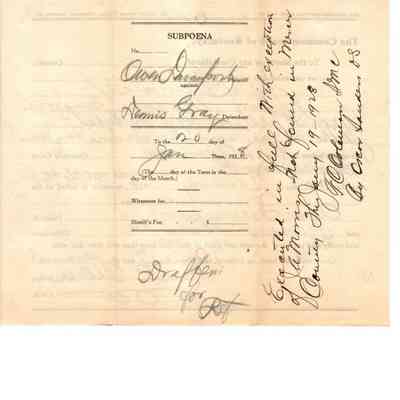 SUBPOENA
No.
Owen Davenport
against
Dennis Gray, Defendant
To the 20 day of
Jan Term, 1928
(The day of the Term is the
day of the Month.)
Witnesses for
Sheriff's Fee - - $
Draffen
for
Executed in full With exception
of J A Morris Not found in Mercer
County This Jany 19 1928
Coleman S M C
By Oscar Sanders D S